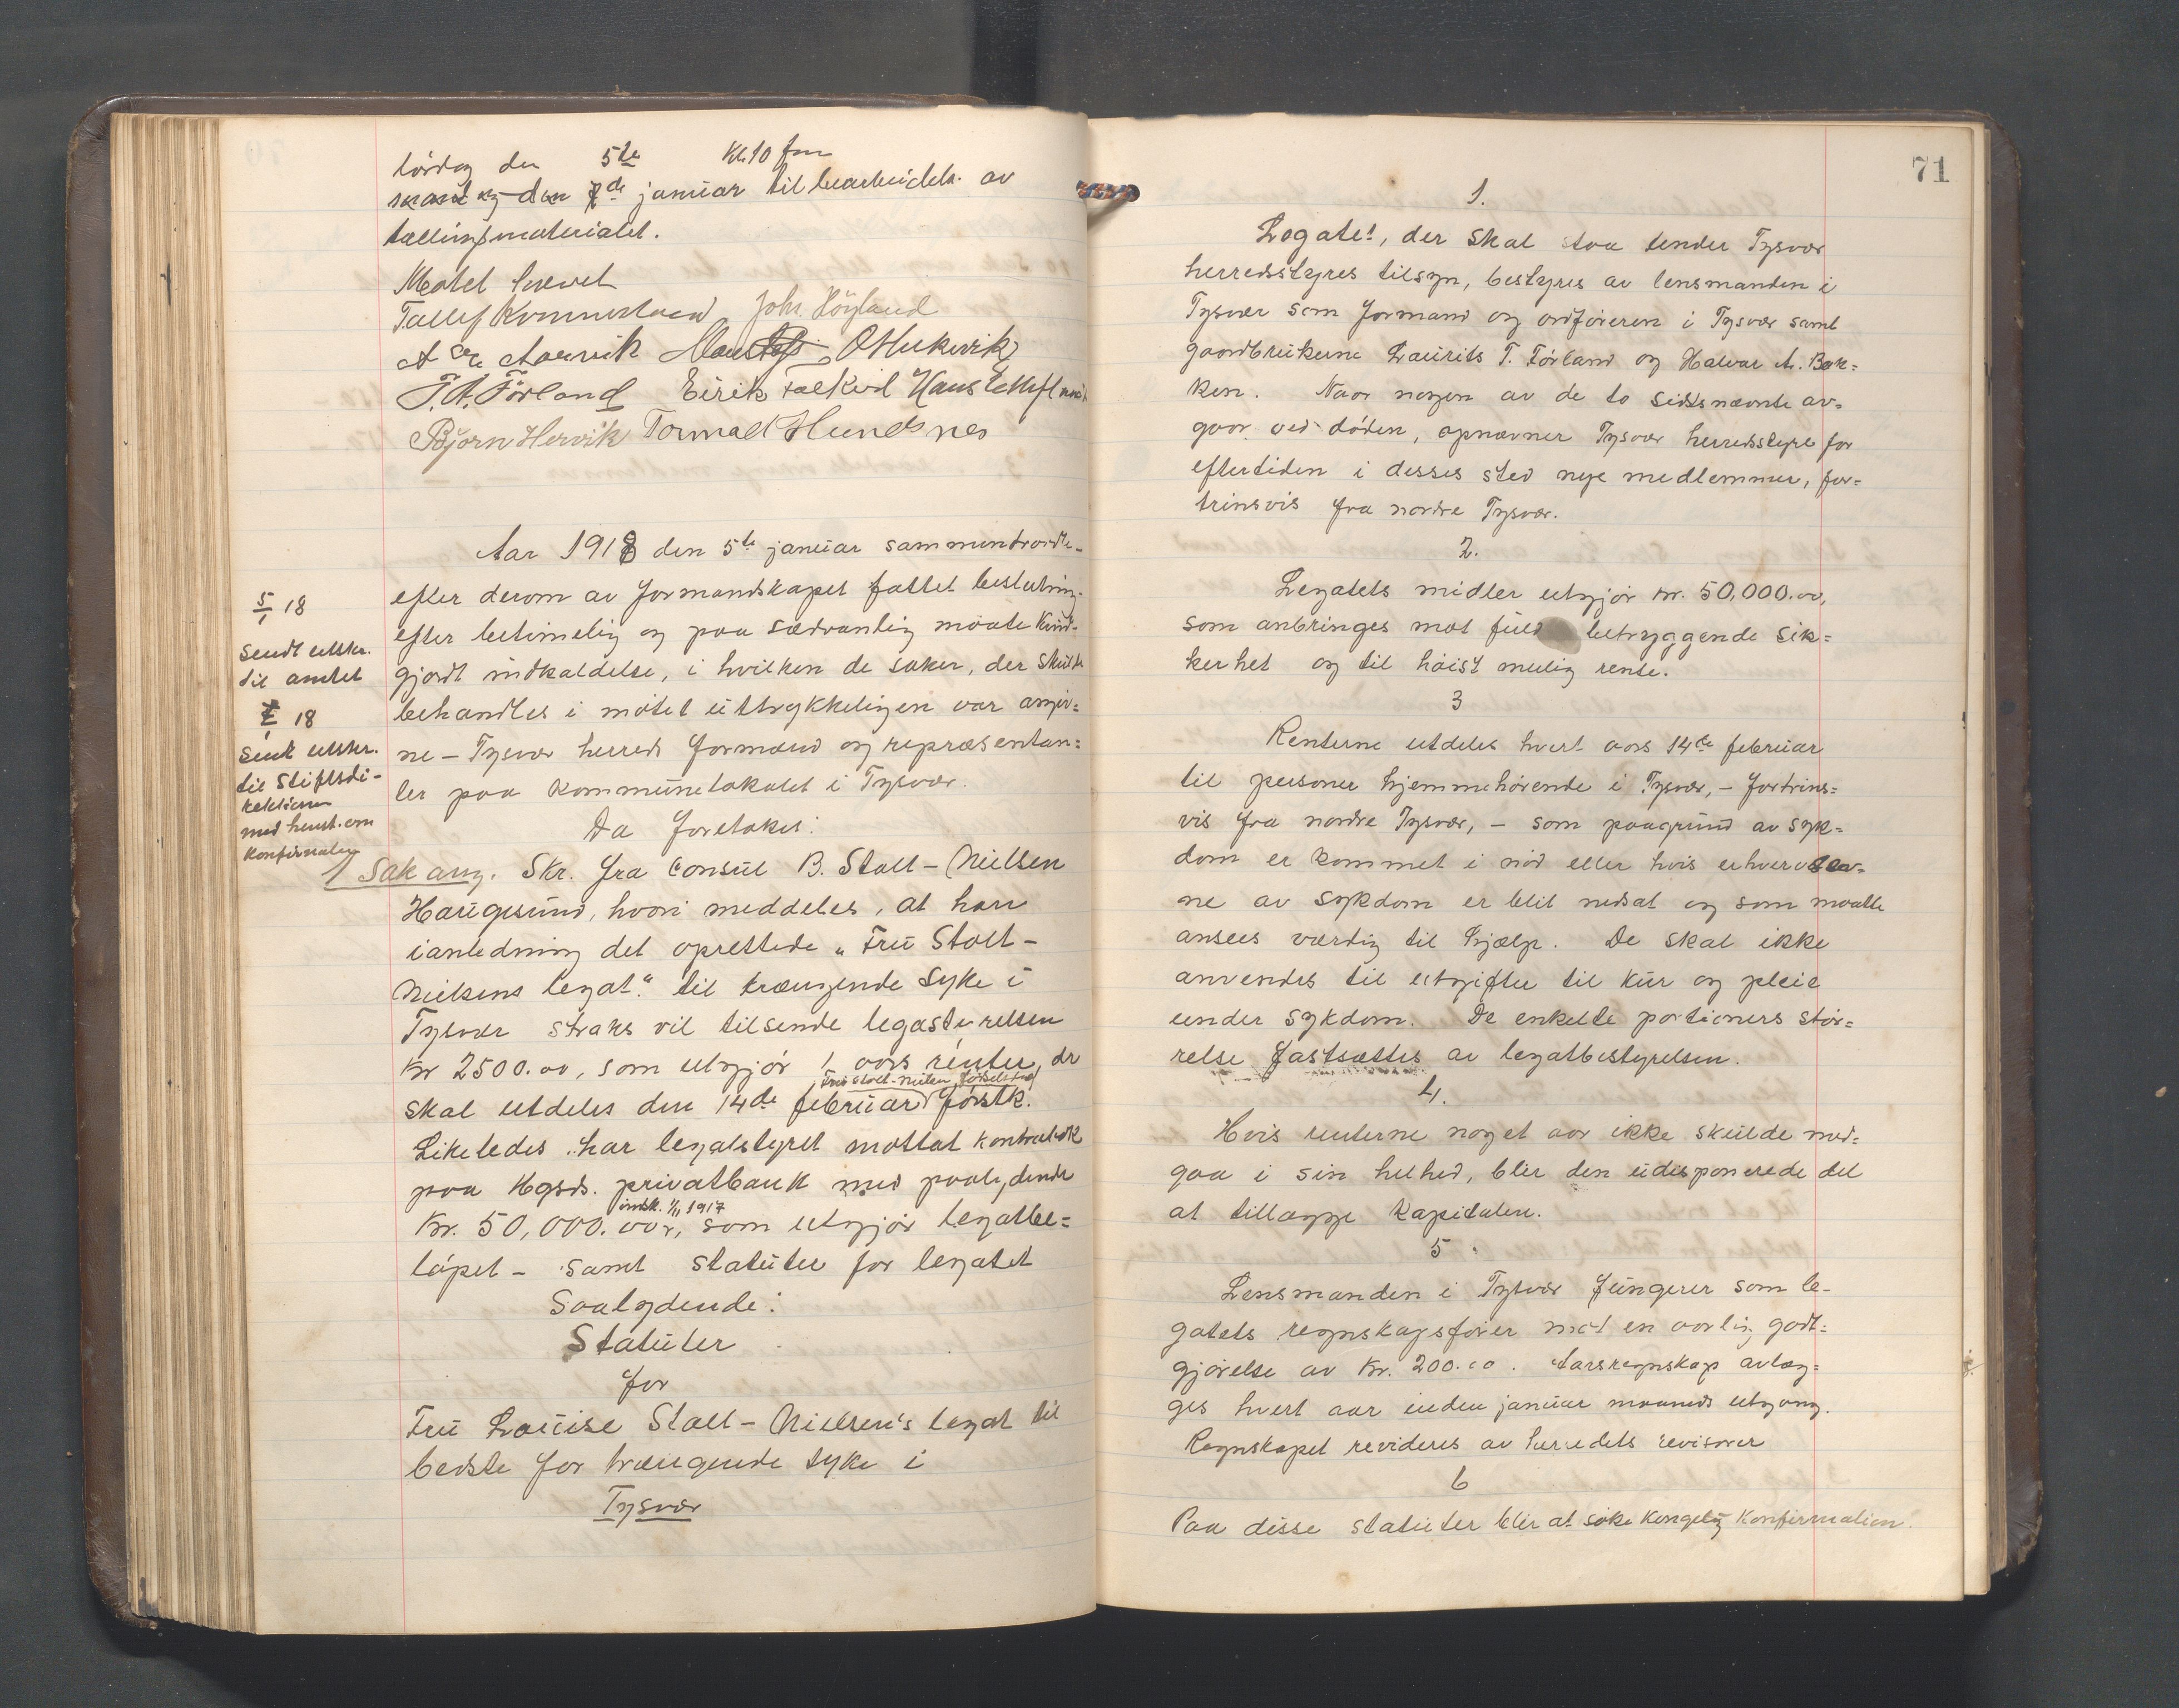 lördag den 5te Kl. 10 fm
mandag den 7de januar til bearbeidelse av
tællingsmaterialet.
Tallef Kommedal Joh. Höyland
Aarvik O Mukevik
T. A. Förland Eirik Falkeid Hans
Björn Hervik Tormod Hundsnes
Aar 1918 den 5te januar sammentraadte
efter derom av formandskapet fattet beslutning
efter betimelig og paa sædvanlig maate kund-
gjort indkaldelse, i hvilken de saker, der skulde
behandles i mötet uttrykkeligen var angiv=
ne – Tysvær herreds formænd og repræsentan=
ter paa kommunelokalet i Tysvær.
Da foretokes:
5/1 18
Sendt utskr.
til amtet
7/1 18
Sent utskr.
til Stiftsdi-
rektionen
med henst. om
Konfirmation
1 Sak ang. Skr. fra consul B. Stolt-Nielsen
Haugesund, hvori meddeles, at han
i anledning det oprettede „Fru Stolt-
Nielsens legat" til trængende syke i
Tysvær straks vil tilsende legatstyrelsen
Kr 2500.00, som utgjör 1 aars renter, der
Fru Stolt-Nielsen födselsdag
skal utdeles den 14de februar förstk.
Likeledes har legatstyret mottat kontrabok
paa Hgsds. privatbank med paalydende
indsk. 1/11 1917
Kr. 50,000.00, som utgjör legatbe=
löpet – samt statuter for legatet
Saalydende:
Statuter
for
Fru Louise Stolt-Nielsen's legat til
bedste for trængende syke i
Tysvær
71
1.
Legatet, der skal staa under Tysvær
herredsstyres tilsyn, bestyres av lensmanden i
Tysvær som formand og ordföreren i Tysvær samt
gaardbrukerne Laurits T. Förland og Halvar A. Bak=
ken. Naar nogen av de to sidstnævnte av=
gaar ved döden, opnævner Tysvær herredsstyre for
eftertiden i desses sted nye medlemmer, for=
trinsvis fra nordre Tysvær.
2.
Legatets midler utgjör kr. 50,000.00,
som anbringes mot fuld betryggende sik=
kerhet og til höist mulig rente.
3
Renterne utdeles hvert aars 14de februar
til personer hjemmehörende i Tysvær, – fortrins=
vis fra nordre Tysvær, – som paagrund av syk=
dom er kommet i nöd eller hvis erhvervsev=
ne av sykdom er blit nedsat og som maatte
ansees værdig til hjælp. De skal ikke
anvendes til utgifter til kur og pleie
under sykdom. De enkelte portioners stör=
relse fastsættes av legatbestyrelsen.
4.
Hvis renterne noget aar ikke skulde med=
gaa i sin helhed, blir den udisponerede del
at tillægge kapitalen.
5
Lensmanden i Tysvær fungerer som le-
gatets regnskapsförer mot en aarlig godt=
gjörelse av kr. 200.00. Aarsregnskap avlæg=
ges hvert aar inden januar maaneds utgang.
Regnskapet revideres av herredets revisorer
6
Paa disse statuter blir at söke Kongelig Konfirmation.